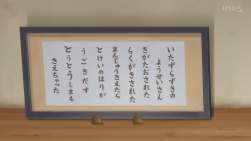 いたずらずきの
ようせいさん
きがたおされた
らくがきされた
まんちゅうきえたら
とけいのはりが
うごきだす
とうとうしまも
きえちゃった